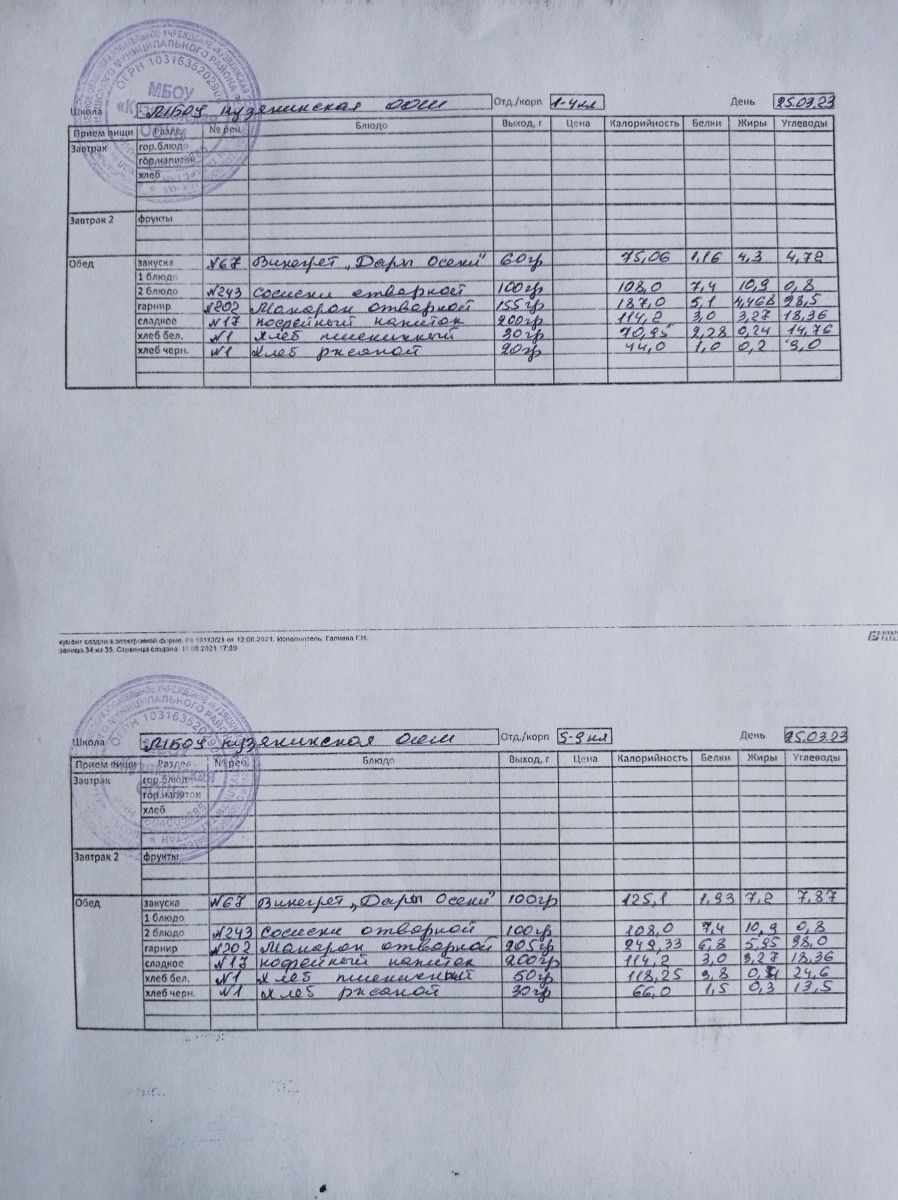 МБОУ
Школа МБОУ Кузякинская ООШ Отд./корп 1-4 кл День 25.03.23
Прием пищи Раздел № рец. Блюдо Выход, г Цена Калорийность Белки Жиры Углеводы
Завтрак гор.блюдо
гор.напиток
хлеб
Завтрак 2 фрукты
Обед закуска №67 Винегрет „Дары Осени" 60гр 75,06 1,16 4,3 4,72
1 блюдо
2 блюдо №243 Сосиски отварной 100гр 108,0 7,4 10,9 0,8
гарнир №202 Макарон отварной 155гр 187,0 5,1 4,468 28,5
сладкое №17 кофейный напиток 200гр 114,2 3,0 3,27 18,36
хлеб бел. №1 Хлеб пшеничный 30гр 70,95 2,28 0,24 14,76
хлеб черн. №1 Хлеб ржаной 20гр 44,0 1,0 0,2 9,0
кумент создан в электронной форме. № 10113/21 от 12.08.2021. Исполнитель: Галиева Г.Н.
раница 34 из 35. Страница создана: 11.08.2021 17:09
Школа МБОУ Кузякинская ООШ Отд./корп 5-9 кл День 25.03.23
Прием пищи Раздел № рец. Блюдо Выход, г Цена Калорийность Белки Жиры Углеводы
Завтрак гор.блюдо
гор.напиток
хлеб
Завтрак 2 фрукты
Обед закуска №67 Винегрет „Дары Осени" 100гр 125,1 1,93 7,2 7,87
1 блюдо
2 блюдо №243 Сосиски отварной 100гр 108,0 7,4 10,9 0,8
гарнир №202 Макарон отварной 205гр 249,33 6,8 5,95 38,0
сладкое №17 кофейный напиток 200гр 114,2 3,0 3,27 18,36
хлеб бел. №1 Хлеб пшеничный 50гр 118,25 3,8 24,6
хлеб черн. №1 Хлеб ржаной 30гр 66,0 1,5 0,3 13,5